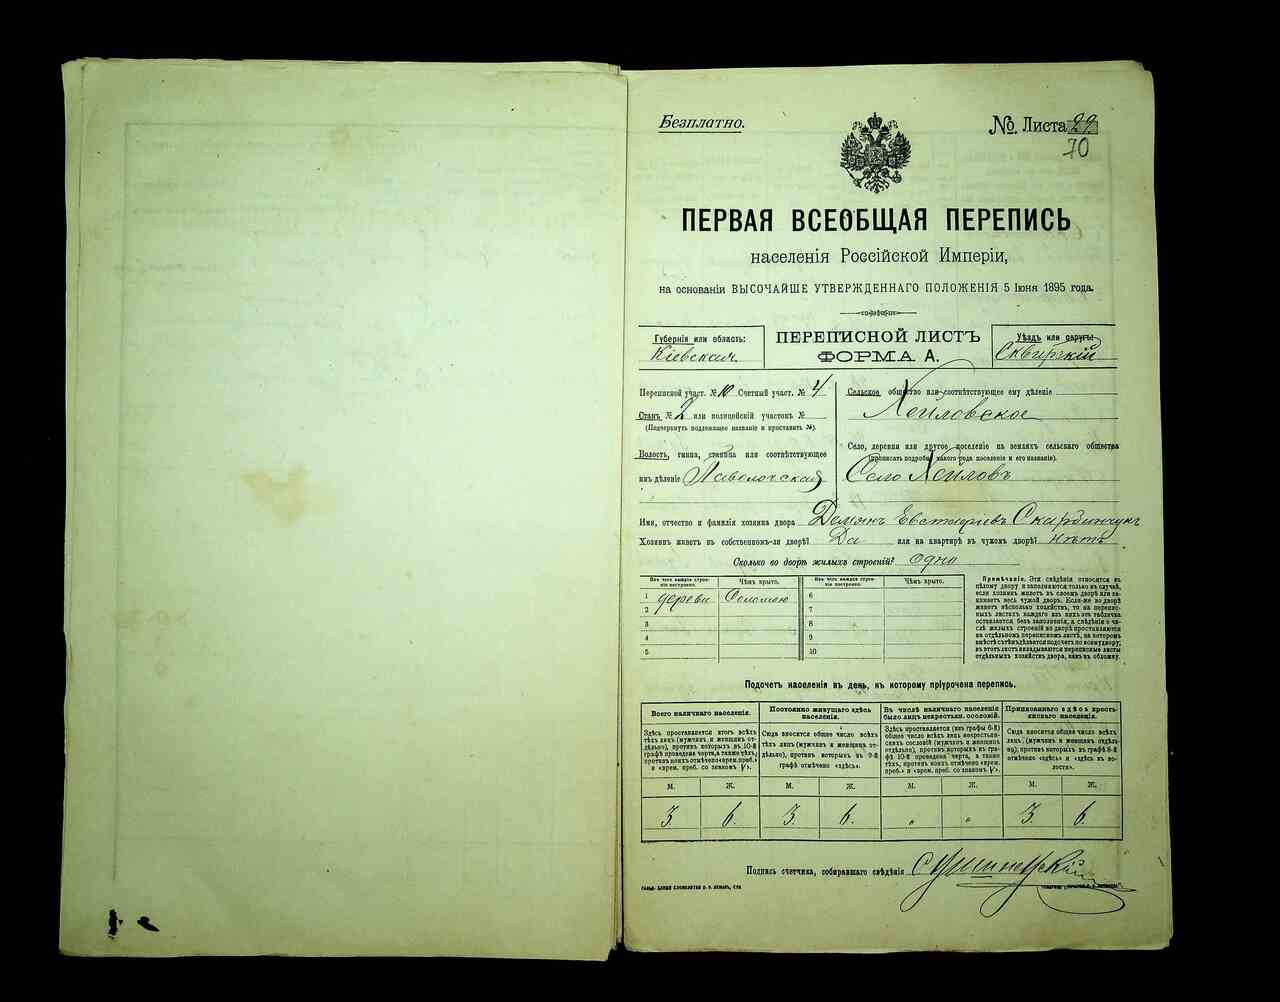 Безплатно.
№. Листа 29.
70
ПЕРВАЯ ВСЕОБЩАЯ ПЕРЕПИСЬ
населенія Россійской Имперіи,
на основаніи ВЫСОЧАЙШЕ УТВЕРЖДЕННАГО ПОЛОЖЕНІЯ 5 Іюня 1895 года.
Губернія или область:
Кіевская
ПЕРЕПИСНОЙ ЛИСТЪ
ФОРМА А.
Уѣздъ или округъ:
Сквирскій
Переписной участ. № 10 Счетный участ. № 4
Станъ № 2 или полицейскій участокъ №
(Подчеркнуть подлежащее названіе и проставить №).
Волость, гмина, станица или соотвѣтствующее
имъ дѣленіе Паволочская
Сельское общество или соотвѣтствующее ему дѣленіе
Хейловское
Село, деревня или другое поселеніе на земляхъ сельскаго общества
(прописать подробно какого рода поселеніе и его названіе).
Село Хейловъ
Имя, отчество и фамилія хозяина двора Демянъ Евстафіевъ
Хозяинъ живетъ въ собственномъ-ли дворѣ? Да или на квартирѣ въ чужомъ дворѣ? нѣтъ
Сколько во дворѣ жилыхъ строеній? одно
Изъ чего каждое строеніе построено.
Чѣмъ крыто.
Изъ чего каждое строеніе построено.
Чѣмъ крыто.
1 дерева Соломою 6
2 7
3 8
4 9
5 10
Примѣчаніе. Эти свѣдѣнія относятся къ
цѣлому двору и заполняются только въ случаѣ,
если хозяинъ живетъ въ своемъ дворѣ или занимаетъ
весь чужой дворъ. Если-же во дворѣ
живетъ нѣсколько хозяйствъ, то на переписныхъ
листахъ каждаго изъ нихъ эта табличка
оставляется безъ заполненія, а свѣдѣнія о числѣ
жилыхъ строеній во дворѣ проставляются
на отдѣльномъ переписномъ листѣ, на которомъ
вмѣстѣ съ тѣмъ дѣлается подсчетъ по всему двору;
въ этотъ листъ вкладываются переписные листы
отдѣльныхъ хозяйствъ двора, какъ въ обложку.
Подсчетъ населенія въ день, къ которому пріурочена перепись.
Всего наличнаго населенія.
Постоянно живущаго здѣсь населенія.
Въ числѣ наличнаго населенія было лицъ некрестьян. сословій.
Приписаннаго здѣсь крестьянскаго населенія.
Здѣсь проставляется итогъ всѣхъ
тѣхъ лицъ (мужчинъ и женщинъ отдѣльно),
противъ которыхъ въ 10-й
графѣ проведена черта, а также тѣхъ,
противъ коихъ отмѣчено «врем. преб.»
и «врем. преб. со знакомъ V».
Сюда вносится общее число всѣхъ
тѣхъ лицъ (мужчинъ и женщинъ отдѣльно),
противъ которыхъ въ 9-й
графѣ отмѣчено «здѣсь».
Здѣсь проставляется (изъ графы 6-й)
общее число всѣхъ лицъ некрестьянскихъ
сословій (мужчинъ и женщинъ
отдѣльно), противъ которыхъ въ графѣ
10 проведена черта, а также
тѣхъ, противъ коихъ отмѣчено «врем.
преб.» и «врем. преб. со знакомъ V».
Сюда вносится общее число всѣхъ
лицъ, (мужчинъ и женщинъ отдѣльно),
противъ которыхъ въ графѣ 8-й
отмѣчено «здѣсь» и «здѣсь въ волости».
М. Ж. М. Ж. М. Ж. М. Ж.
3. 6. 3. 6. „ „ 3. 6.
Подпись счетчика, собиравшаго свѣдѣнія